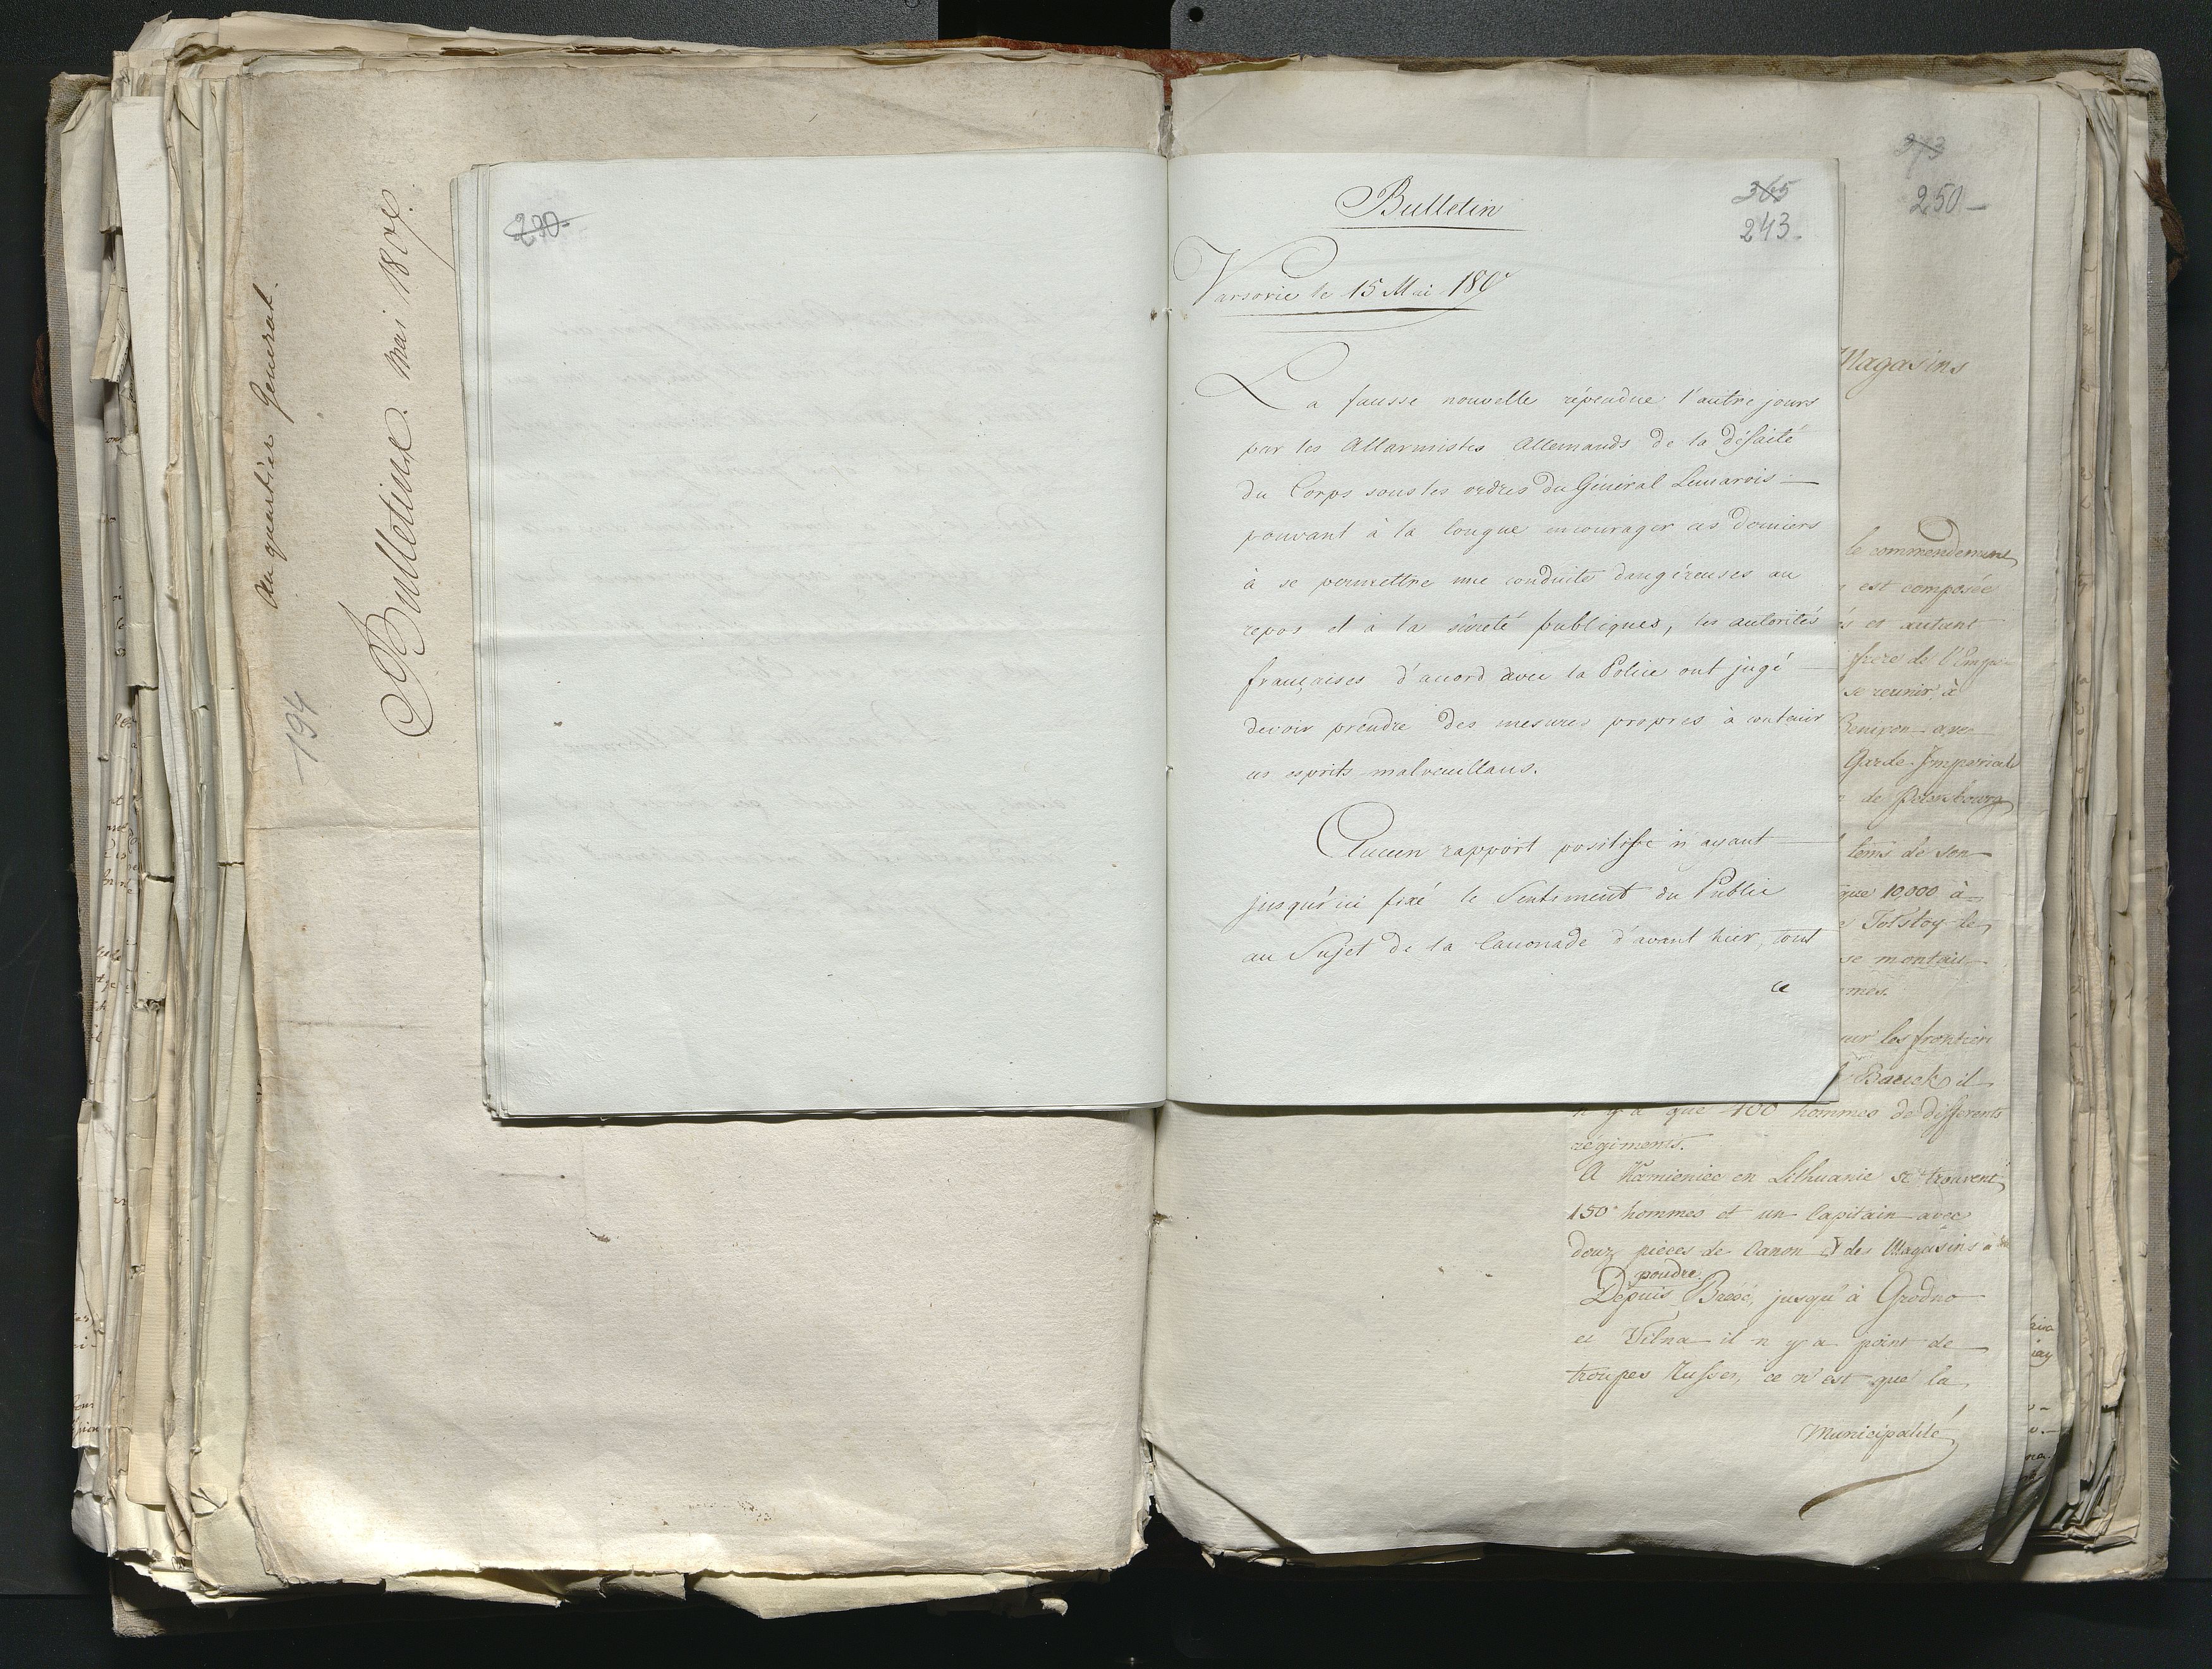 au quartier General.
Bulletins. mai 1807.
194
290.
Bulletin
365
243.
Varsovie le 15 Mai 1807
La fausse nouvelle répendue l'autre jours
par les Allarmistes Allemands de la défaite
du Corps sous les ordres du Général Lemarois
pouvant à la longue encourager ces derniers
à se permettre une conduite dangéreuses au
repos et à la sûreté publiques, les autorités
françaises d'acord avec la Police ont jugé
devoir prendre des mesures propres à contenir
ces esprits malveuillans.
Aucun rapport positif n'ayant
jusqu'ici fixé le Sentiment du Public
au Sujet de la Canonade d'avant hier, tout
ce
273
250
Magasins
le commendement
est composée
et autant
frere de l'Emp
se reunir à
Garde Imperiale
de Petersbourg
tems de son
que 10,000 à
Tolstoy le
se montait
mes.
sur les frontier
il
n'y a que 100 hommes de differents
régiments.
A Kamieniec en Lithuanie se trouvent
150 hommes et un Capitain avec
douz pièces de Canon & des Magasins à
poudre.
Depuis Bresc, jusqu'à Grodno
et Vilna il n'y a point de
troupes Russes, ce n'est que la
Municipalité